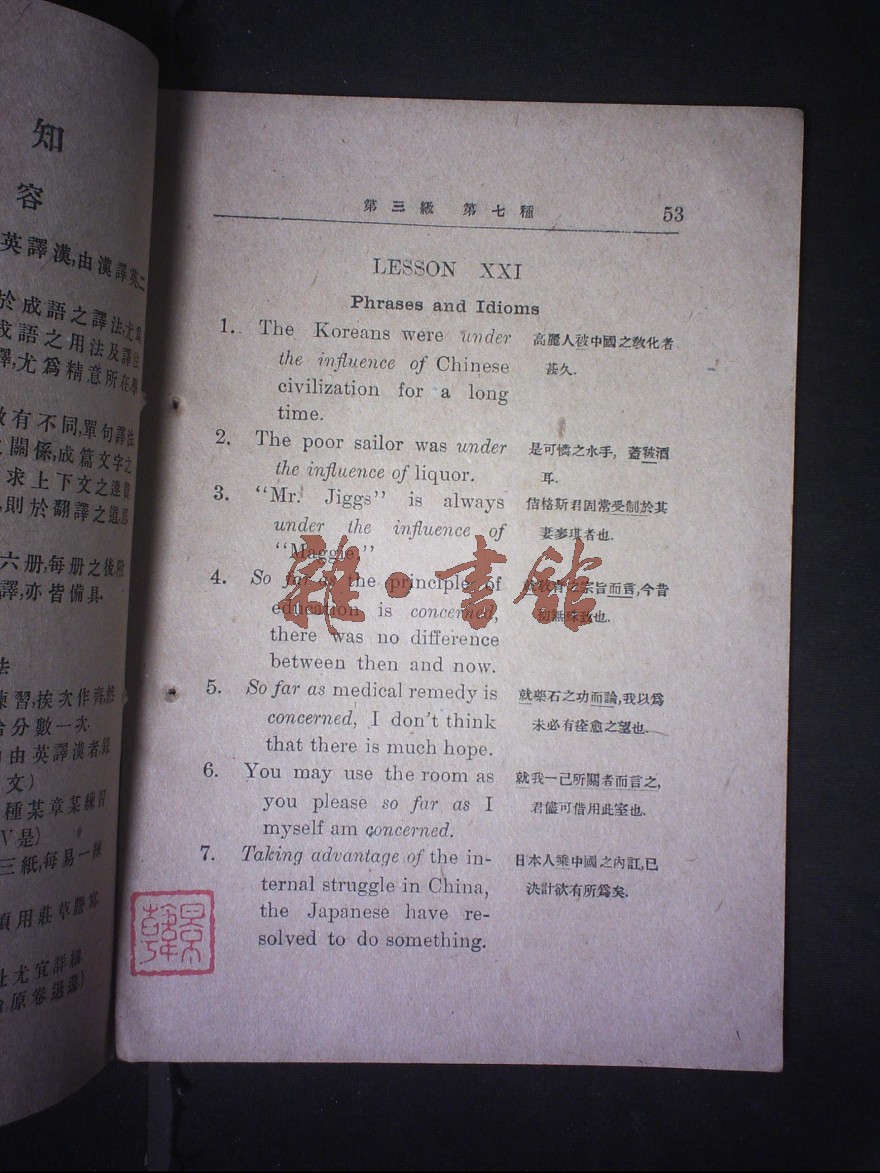 知
容
英譯漢,由漢譯英二
於成語之譯法,尤爲
成語之用法及譯法
譯,尤爲精意所在,學
有不同,單句譯法
關係,成篇文字之
求上下文之連貫
則於翻譯之道,思
六册,每册之後,附
譯,亦皆備具.
法
練習,挨次作齊,繳
分數一次.
由英譯漢者,錄
文)
種某章某練習
V是)
三紙,每易一練
須用莊草謄寫
尤宜詳細
原卷退還)
第三級 第七種 53
LESSON XXI
Phrases and Idioms
1. The Koreans were under 高麗人被中國之敎化者
the influence of Chinese 甚久.
civilization for a long
time.
2. The poor sailor was under 是可憐之水手, 蓋被酒
the influence of liquor. 耳.
3. “Mr. Jiggs” is always 佶格斯君固常受制於其
under the influence of 妻麥琪者也.
“Maggie.”
4. So far as the principle of 於敎育之宗旨而言,今昔
education is concerned, 初無殊致也.
there was no difference
between then and now.
5. So far as medical remedy is 就藥石之功而論,我以爲
concerned, I don't think 未必有痊愈之望也.
that there is much hope.
6. You may use the room as 就我一己所關者而言之,
you please so far as I 君儘可借用此室也.
myself am concerned.
7. Taking advantage of the in- 日本人乘中國之內訌,已
ternal struggle in China, 決計欲有所爲矣.
the Japanese have re-
solved to do something.
雜·書館